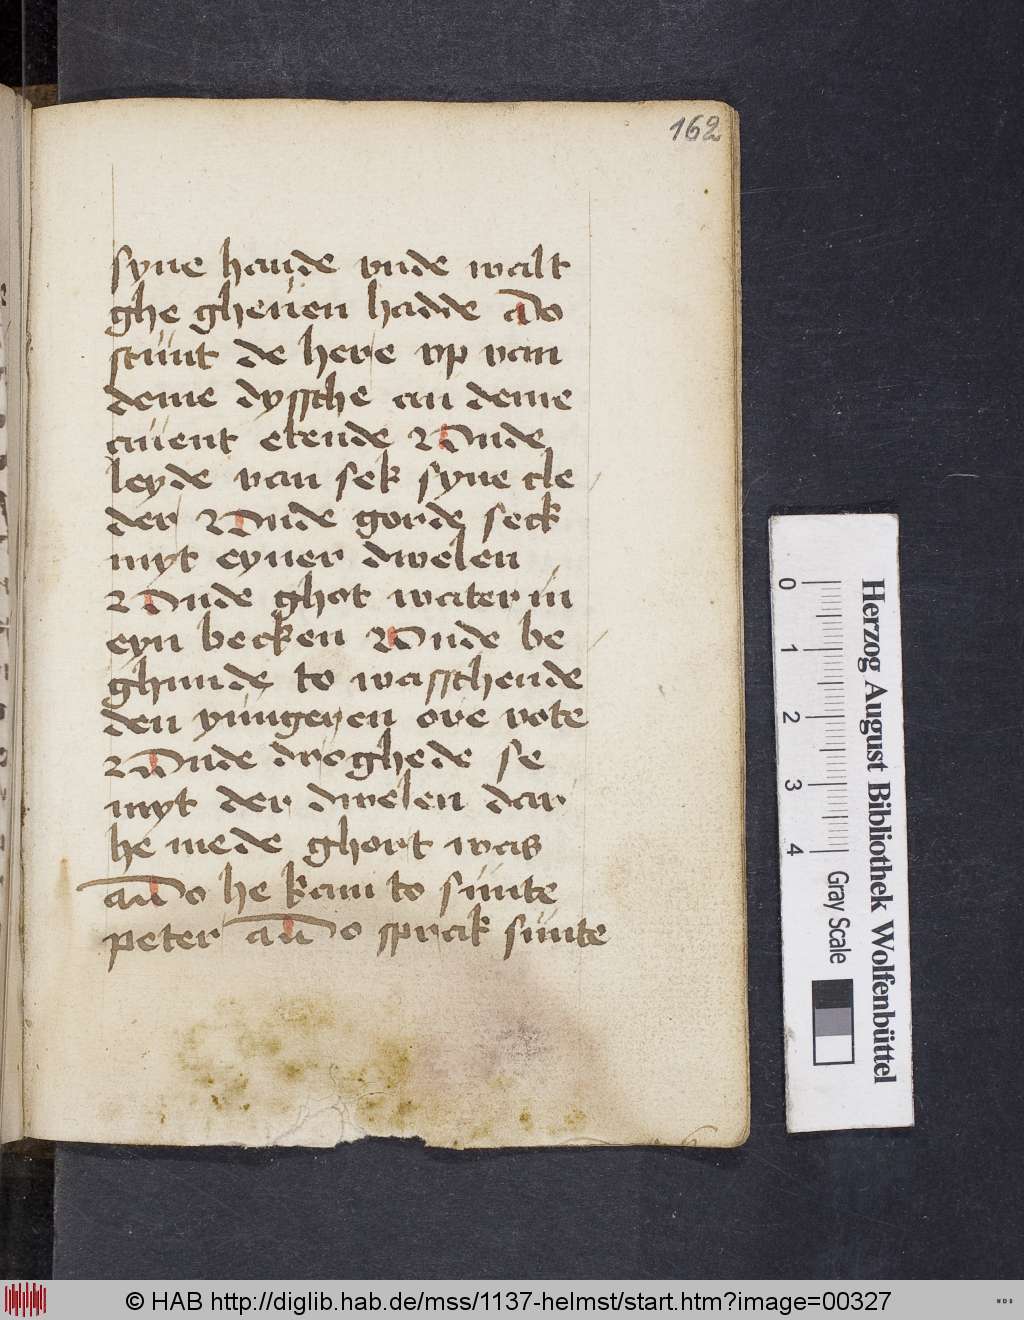 162
syne hande vnde walt
ghe gheuen hadde Do
stunt de here vp van
deme dyssche an deme
auent etende Vnde
leyde van sek syne cle
der Vnde gorde seck
myt eyner dwelen
Vnde ghot water in
eyn becken Vnde be
ghunde to wasschende
den yungeren ore vote
Vnde droghede se
myt der dwelen dar
he mede ghort was
Do he kam to sunte
peter Do sprak sunte
Herzog August Bibliothek Wolfenbüttel
0 1 2 3 4 Gray Scale
© HAB http://diglib.hab.de/mss/1137-helmst/start.htm?image=00327